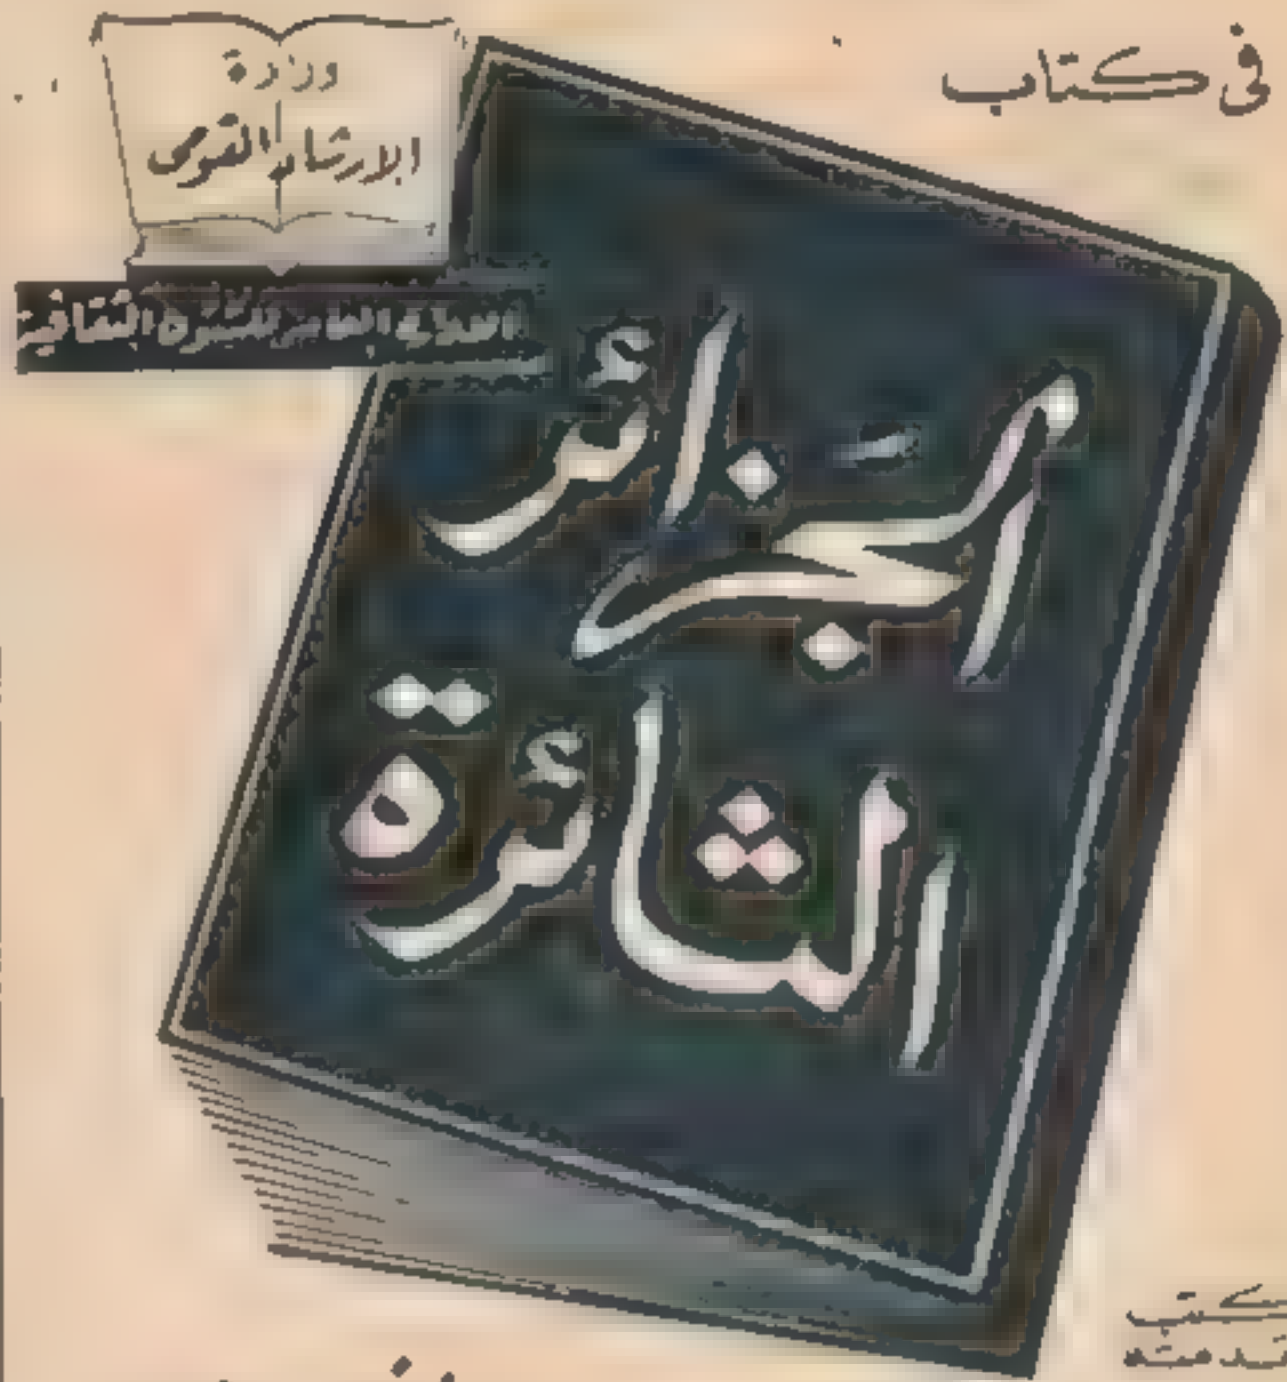 فى كتاب
وزارة
الارشاد القومى
الثقافية
الجزائر
الثائرة
كتب